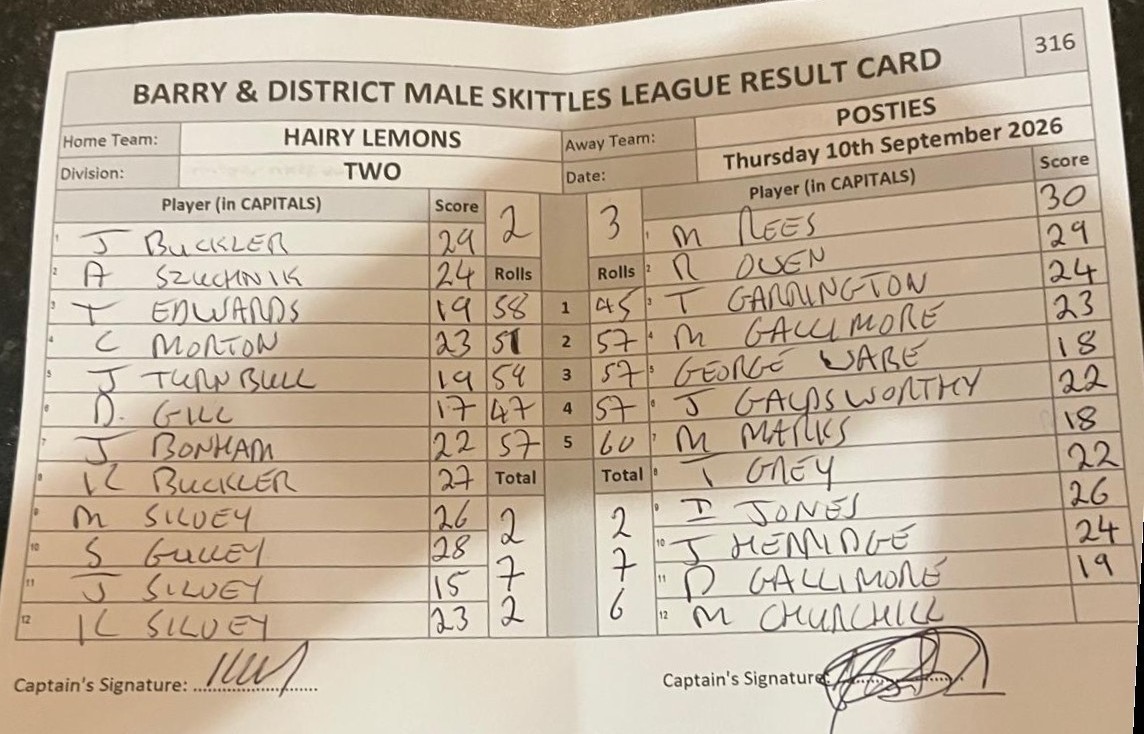 316
BARRY & DISTRICT MALE SKITTLES LEAGUE RESULT CARD
Home Team: HAIRY LEMONS Away Team: POSTIES
Division: TWO Date: Thursday 10th September 2026
Player (in CAPITALS) Score 2 3 Player (in CAPITALS) Score
1 J BUCKLER 29 1 M REES 30
2 A SZUCHNIK 24 Rolls Rolls 2 R OWEN 29
3 T EDWARDS 19 58 1 45 3 T GARRINGTON 24
4 C MORTON 23 51 2 57 4 M GALLIMORE 23
5 J TURNBULL 19 59 3 57 5 GEORGE WARE 18
6 D. GILL 17 47 4 57 6 J GALDSWORTHY 22
7 J BONHAM 22 57 5 60 7 M MARKS 18
8 K BUCKLER 27 Total Total 8 T GREY 22
9 M SILVEY 26 2 2 9 I JONES 26
10 S GULLEY 28 7 7 10 J HERRIDGE 24
11 J SILVEY 15 2 6 11 D GALLIMORE 19
12 K SILVEY 23 12 M CHURCHILL
Captain's Signature: Captain's Signature: